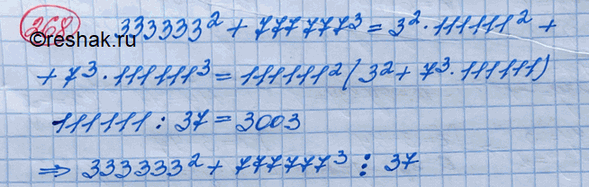 268
333333² + 777777³ = 3² · 111111² +
©reshak.ru
+ 7³ · 111111³ = 111111² (3² + 7³ · 111111)
111111 : 37 = 3003
⇒ 333333² + 777777³ ⋮ 37